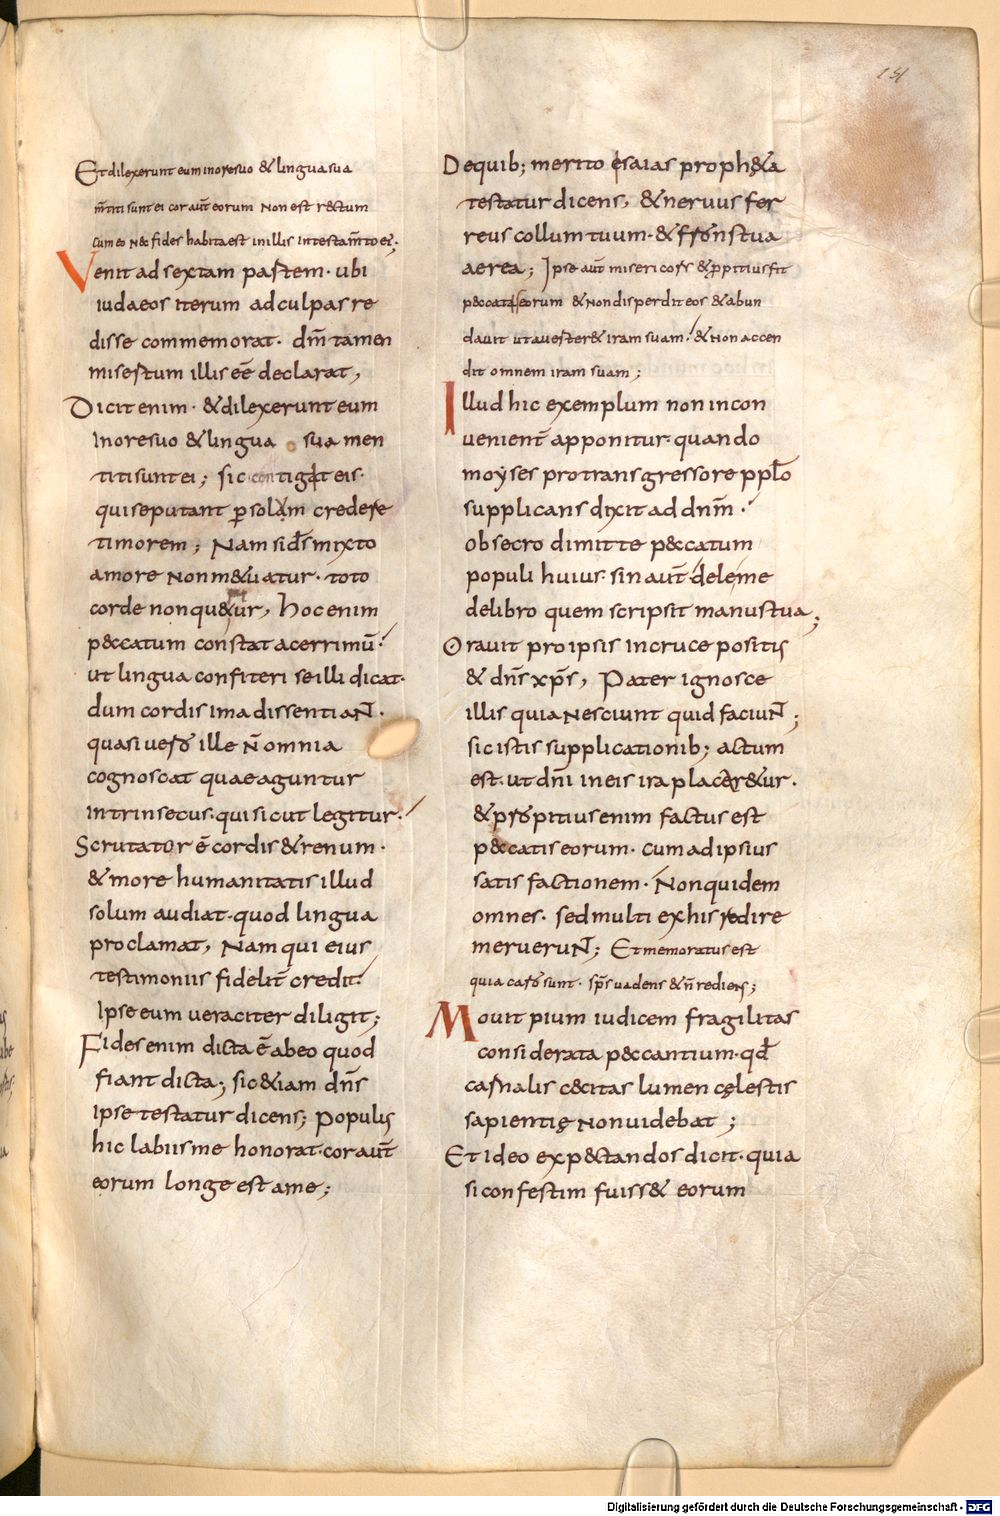 151
Et dilexerunt eum in ore suo & lingua sua
m̄titi sunt ei cor aūt eorum non est rectum
cum eo nec fides habita est in illis in testam̄to ei;
Venit ad sextam partem · ubi
iudaeos iterum ad culpas re
disse commemorat · dn̄m tamen
misestum illis eē declarat,
Dicit enim · & dilexerunt eum
in ore suo & lingua sua men
titi sunt ei; sic contigit eis ·
qui se putant p solum credere
timorem; Nam si dS mixto
amore non m&uatur · toto
corde non qu&ur, Hoc enim
peccatum constat acerrimū
ut lingua confiteri se illi dicat ·
dum cordis ima dissentiant ·
quasi vero ille n̄ omnia
cognoscat quae aguntur
intrinsecus · qui sicut legitur ·
Scrutator ē cordis & renum ·
& more humanitatis illud
solum audiat · quod lingua
proclamat, Nam qui eius
testimoniis fidelit̄ credit
Ipse eum veraciter diligit;
Fides enim dicta ē ab eo quod
fiant dicta; sic &iam dn̄s
ipse testatur dicens; Populus
hic labiis me honorat · cor aūt
eorum longe est a me;
De quib; merito esaias proph&a
testatur dicens, & nervus fer
reus collum tuum · & frons tua
aerea; Ipse aūt misericors & ꝓpitius fit
peccatis eorum & non disperdit eos & abun
davit ut averter& iram suam · & non accen
dit omnem iram suam;
Illud hic exemplum non incon
venient̄ apponitur · quando
moyses pro transgressore pplo
supplicans dixit ad dn̄m ·
obsecro dimitte peccatum
populi huius · sin aūt dele me
de libro quem scripsit manus tua;
Oravit pro ipsis in cruce positis
& dn̄s xp̄s, Pater ignosce
illis quia nesciunt quid faciunt;
sic istis supplicationib; actum
est · ut dn̄i in eis ira placar&ur ·
& propitius enim factus est
peccatis eorum · cum ad ipsius
satisfactionem · Non quidem
omnes · sed multi ex his redire
meruerunt; Et memoratus est
quia caro sunt · sp̄s vadens & n̄ rediens;
Movit pium iudicem fragilitas
considerata peccantium · qđ
carnalis cecitas lumen cęlestis
sapientię non videbat;
Et ideo expectandos dicit · quia
si confestim fuiss& eorum
Digitalisierung gefördert durch die Deutsche Forschungsgemeinschaft - DFG